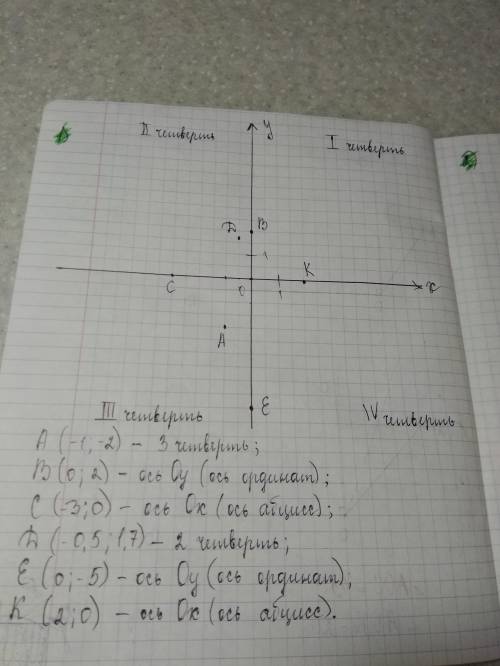 II четверть
y
I четверть
Д
B
1
C
0
1
K
x
A
E
III четверть
IV четверть
A (-1, -2) – 3 четверть;
B (0; 2) – ось Oy (ось ординат);
C (-3; 0) – ось Ox (ось абцисс);
Д (-0,5; 1,7) – 2 четверть;
E (0; -5) – ось Oy (ось ординат);
K (2; 0) – ось Ox (ось абцисс).